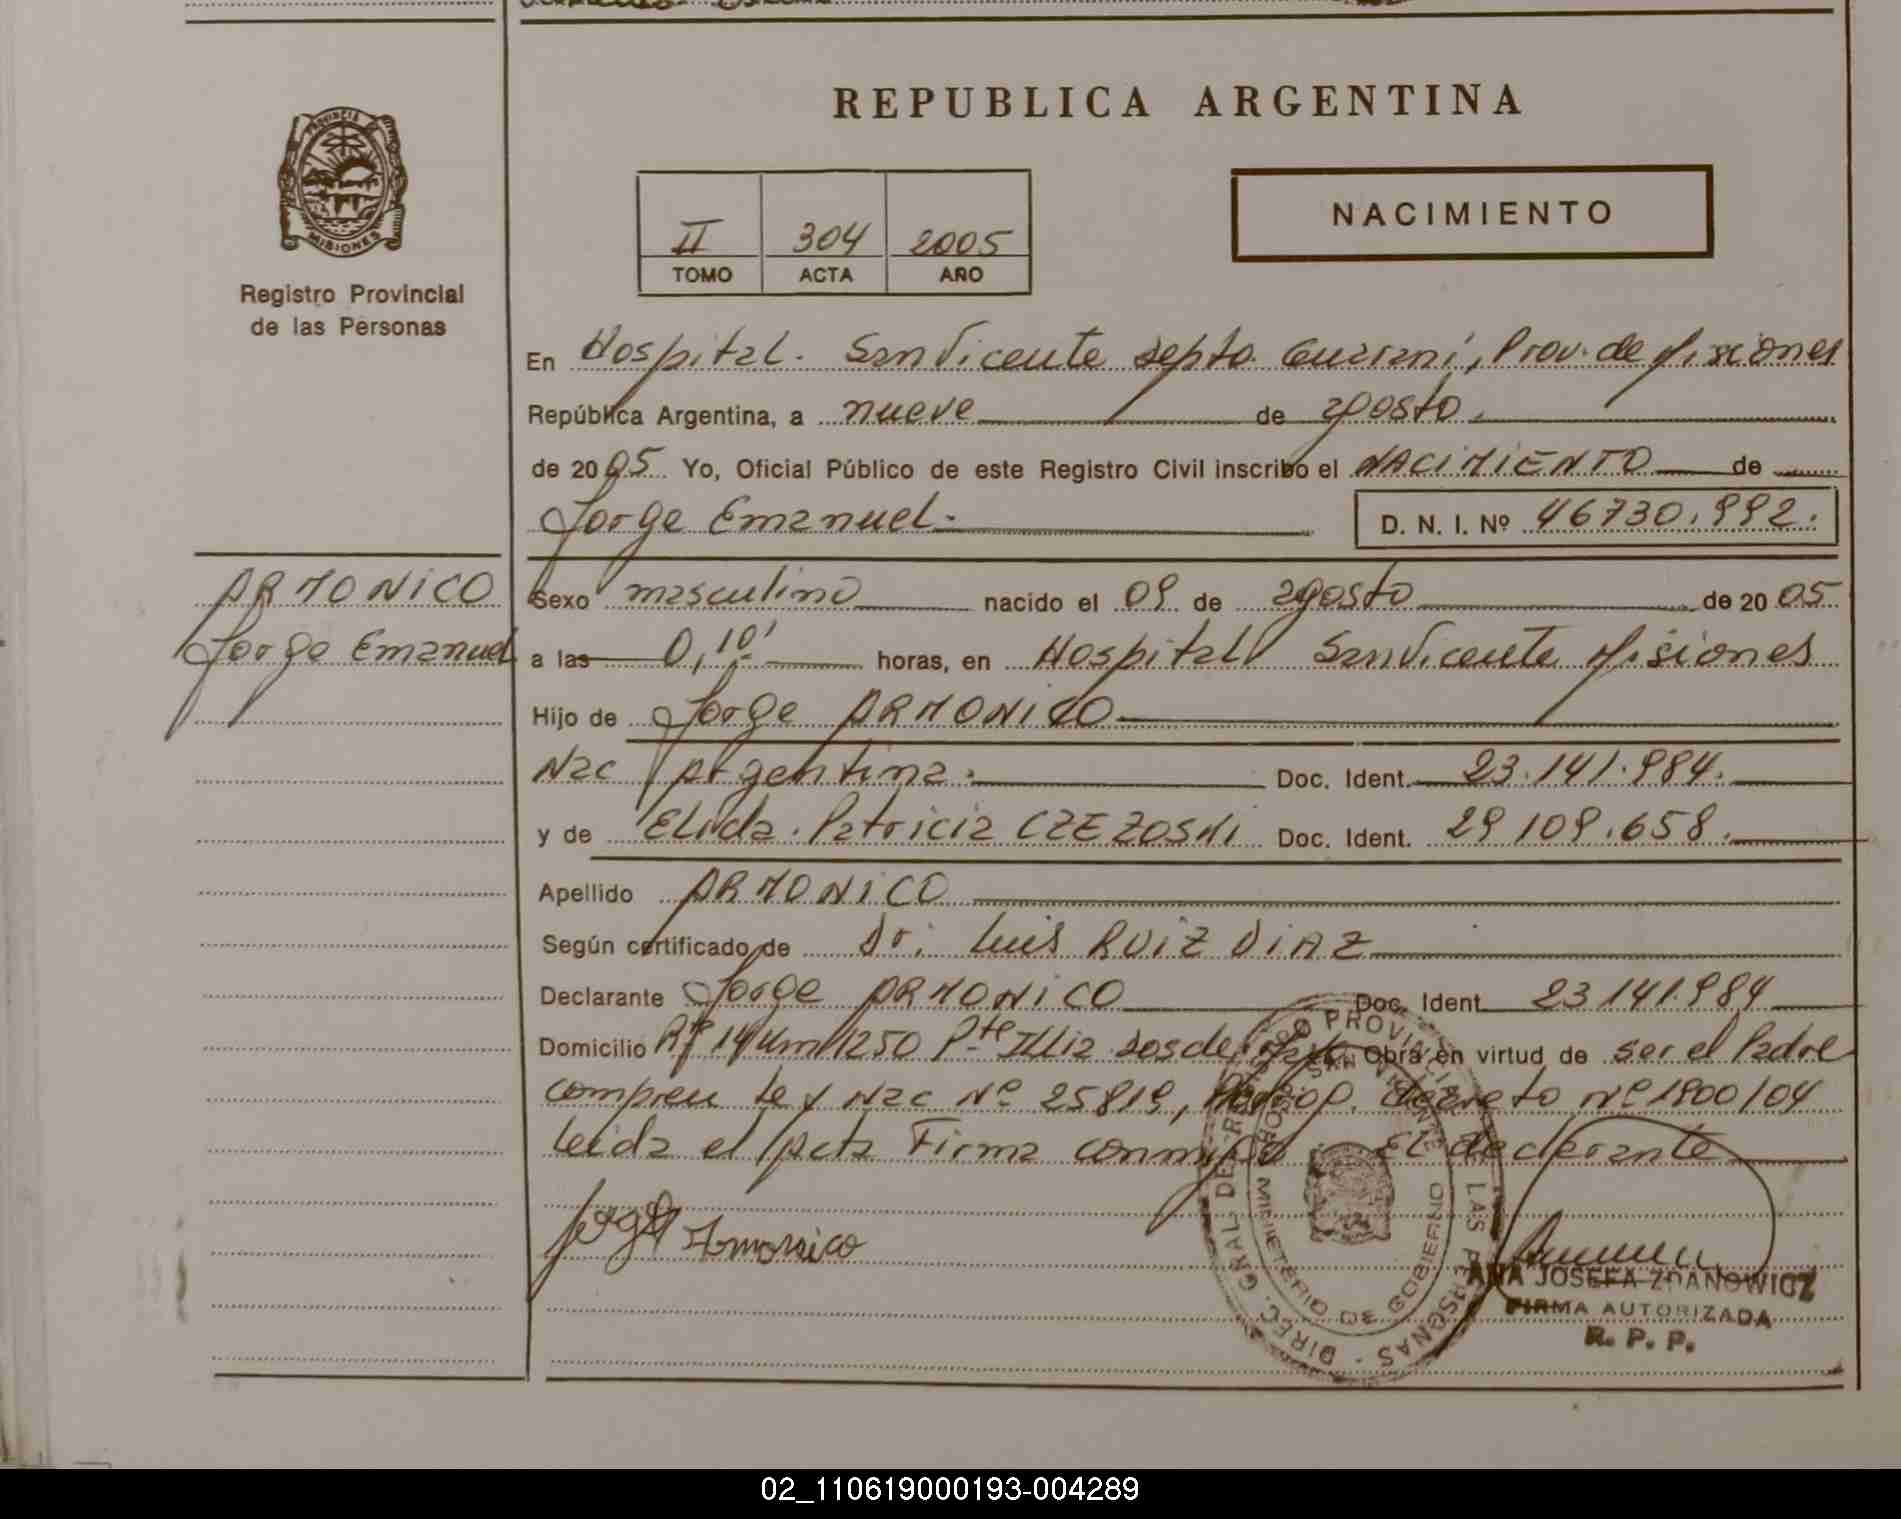 REPUBLICA ARGENTINA
PROVINCIA DE MISIONES
Registro Provincial
de las Personas
II 304 2005
TOMO ACTA AÑO
NACIMIENTO
En Hospital. San Vicente depto. Guarani, Prov. de Misiones
República Argentina, a nueve de agosto.
de 2005 Yo, Oficial Público de este Registro Civil inscribo el NACIMIENTO de
Jorge Emanuel.
D. N. I. Nº 46730.992.
ARMONICO
Jorge Emanuel
Sexo masculino nacido el 09 de agosto de 2005
a las 0,10' horas, en Hospital San Vicente Misiones
Hijo de Jorge ARMONICO
Nac Argentina. Doc. Ident. 23.141.984.
y de Elida. Patricia CZEZOSKI Doc. Ident. 29 109.658.
Apellido ARMONICO
Según certificado de Dr. Luis RUIZ DIAZ
Declarante Jorge ARMONICO Doc. Ident 23 141.984
Domicilio Km 1250 Obra en virtud de ser el Padre
Nac Nº 25819, decreto Nº 1800/04
Leida el Acta Firma conmigo. El declarante
Jorge Armonico
DIREC. GRAL. DEL REGISTRO PROVINCIAL DE LAS PERSONAS
SAN VICENTE
MINISTERIO DE GOBIERNO
ANA JOSEFA ZDANOWICZ
FIRMA AUTORIZADA
R. P. P.
02_110619000193-004289